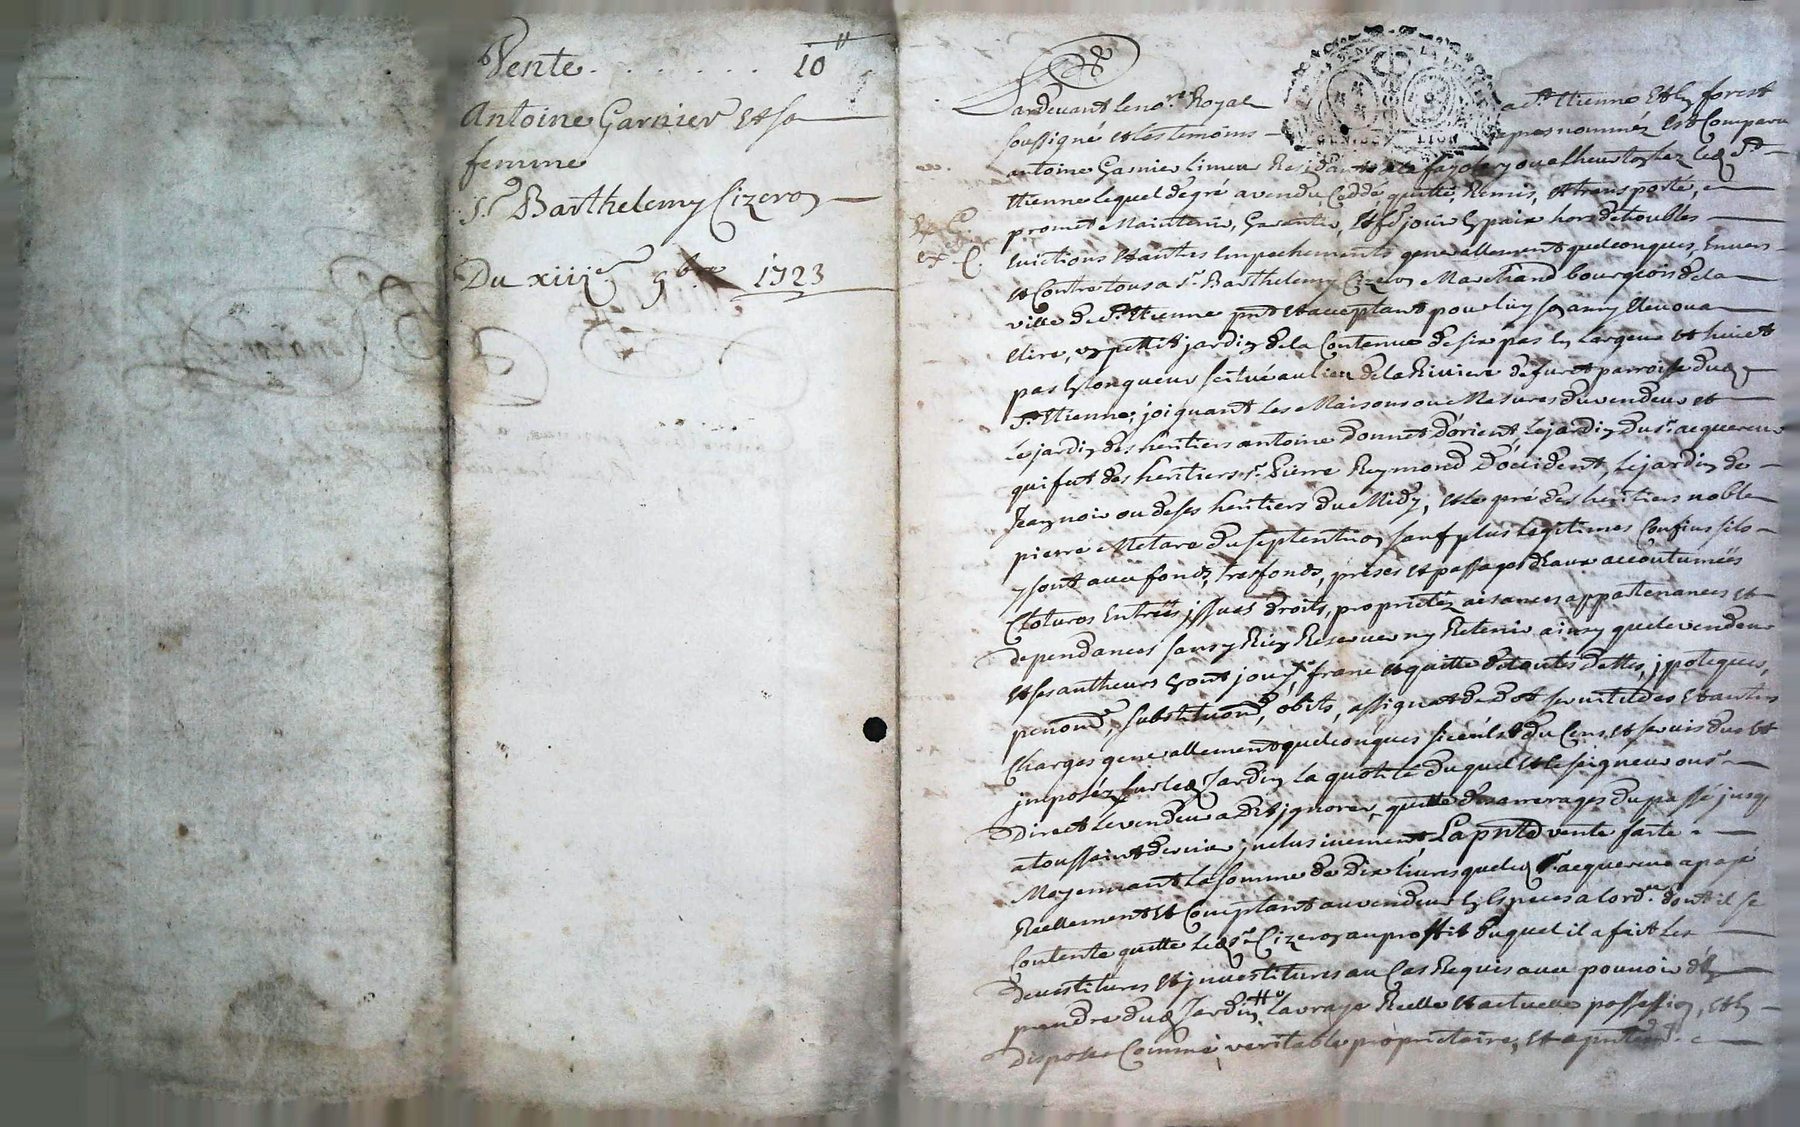 Vente . . . . . . . 10 ₶
Antoine Garnier et sa
femme
Sr Barthelemy Cizeron
Du xiiije 9bre 1723
GEN. DE LION
Pardevant le nore Royal a St Etienne en forest
soussigné et les temoins apres nommés est Comparu
antoine Garnier Limeur Residant a ouelheurtoy lez led St
Etienne lequel de gré a vendu, Cedde, quitte, Remis, et transporté, et
promet Maintenir, Garentir, et fe jouir en paix hors de troubles
evictions et autres Empechements generallement quelconques, Envers
et Contre tous a sr Barthelemy Cizeron Marchand bourgeois de la
ville de St Etienne pnt et acceptant pour luy son amy Eleu ou a
Elire, un petit jardin de la Contenue de six pas en Largeur et huict
pas en longueur scitué au lieu de la Riviere de furet parroisse dud
St Etienne, joignant les Maisons ou Masures du vendeur et
le jardin des heritiers antoine Bonnet d'orient, le jardin du sr acquereur
qui fut des heritiers sr Pierre Reymond d'occident, le jardin de
Jean noir ou de ses heritiers du Midy, et le pré des heritiers noble
pierre Metare du septentrion sauf plus legitimes Confins sils
y sont avec fonds, tresfonds, prises et passages d'eaux accoutumées
Clotures Entrées, issues droits, proprietéz aisances appartenances et
dependances sans y Rien Reserver ny Retenir ainsy que le vendeur
et ses autheurs en ont jouy, franc et quitte de toutes dettes, ipoteques,
pentions, substitutions, obits, assignat de Dot servitudes et autres
Charges generallement quelconques si ce n'est du Cens et servis dus et
imposéz sur led Jardin la quotité duquel et le seigneur
Direct le vendeur a dit ignorer, quitte des arrerages du passé jusq
a toussaint dernier inclusivement La pnte vente faite
Moyennant la somme de Dix livres que led sr acquereur a payé
Reellement et Comptant au vendeur en Especes a lord.re dont il se
Contente quitte led sr Cizeron au proffit duquel il a fait les
devestitures et jnvestitures au Cas Requis avec pouvoir de
prendre dud Jardin la vraye Reelle et actuelle possession, et en
disposer Comme veritable proprietaire, et a